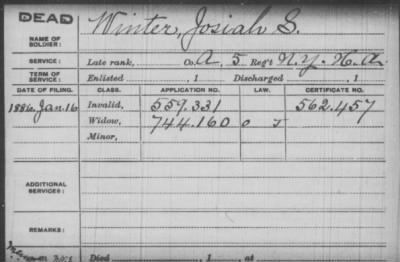 DEAD
NAME OF SOLDIER: Winter, Josiah S.
SERVICE: Late rank, Co. A, 5 Reg't N.Y. H.A.
TERM OF SERVICE: Enlisted , 1 Discharged , 1
DATE OF FILING. CLASS. APPLICATION NO. LAW. CERTIFICATE NO.
1886 Jan. 16 Invalid, 559.331 562.457
Widow, 744.160 0 J
Minor,
ADDITIONAL SERVICES:
REMARKS:
Died , 1 , at